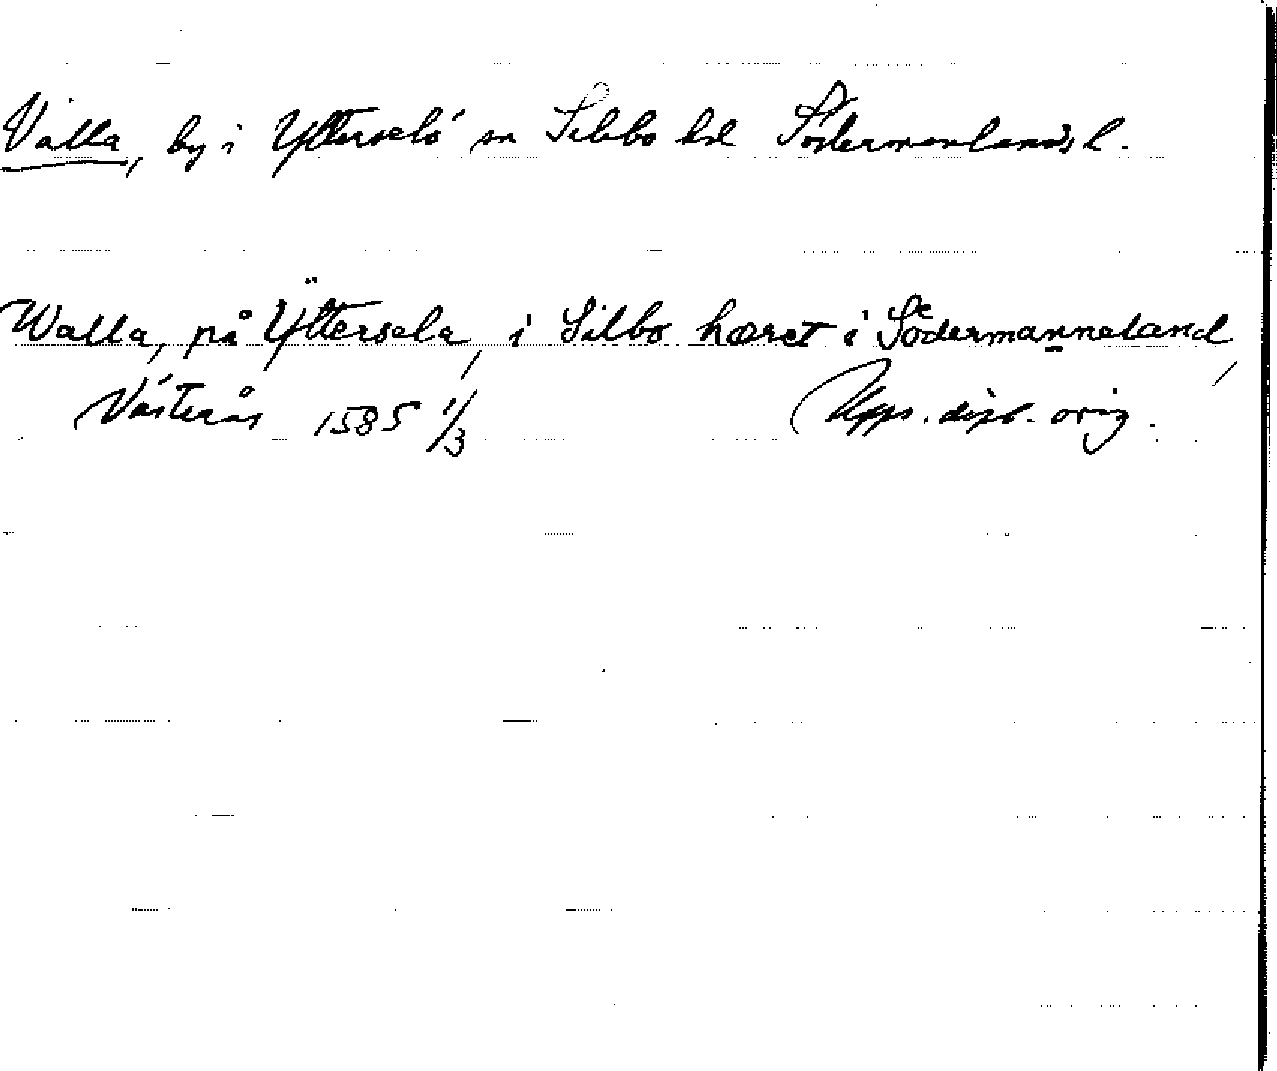 Valla, by i Ytterselö sn Selebo hd Södermanlands l.
Walla, på Ÿttersela, i Silbo hæret i Södermanneland,
Västerås 1585 1/3 Upps. dipl. orig.